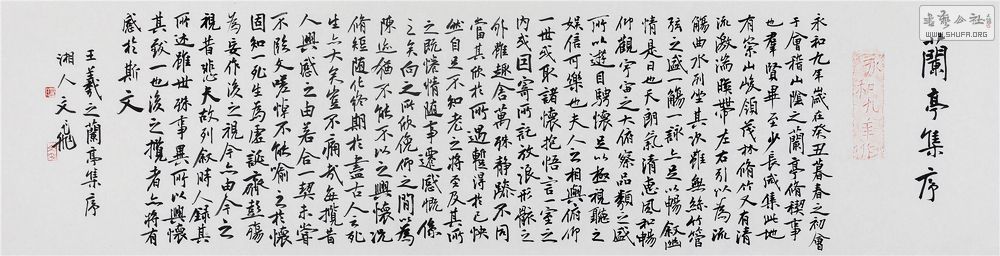 蘭亭集序
永和九年歲在癸丑暮春之初會
于會稽山陰之蘭亭脩稧事
也群賢畢至少長咸集此地
有崇山峻領茂林脩竹又有清
流激湍暎帶左右引以為流
觴曲水列坐其次雖無絲竹管
弦之盛一觴一詠亦足以暢敘幽
情是日也天朗氣清惠風和暢
仰觀宇宙之大俯察品類之盛
所以遊目騁懷足以極視聽之
娛信可樂也夫人之相與俯仰
一世或取諸懷抱悟言一室之
內或因寄所託放浪形骸之
外雖趣舍萬殊靜躁不同
當其欣於所遇暫得於己怏
然自足不知老之將至及其所
之既惓情隨事遷感慨係
之矣向之所欣俛仰之間以為
陳迹猶不能不以之興懷況
脩短隨化終期於盡古人云死
生亦大矣豈不痛哉每攬昔
人興感之由若合一契未嘗
不臨文嗟悼不能喻之於懷
固知一死生為虛誕齊彭殤
為妄作後之視今亦由今之
視昔悲夫故列敘時人錄其
所述雖世殊事異所以興懷
其致一也後之攬者亦將有
感於斯文
王羲之蘭亭集序
湘人文飛
书艺公社
WWW.SHUFA.ORG